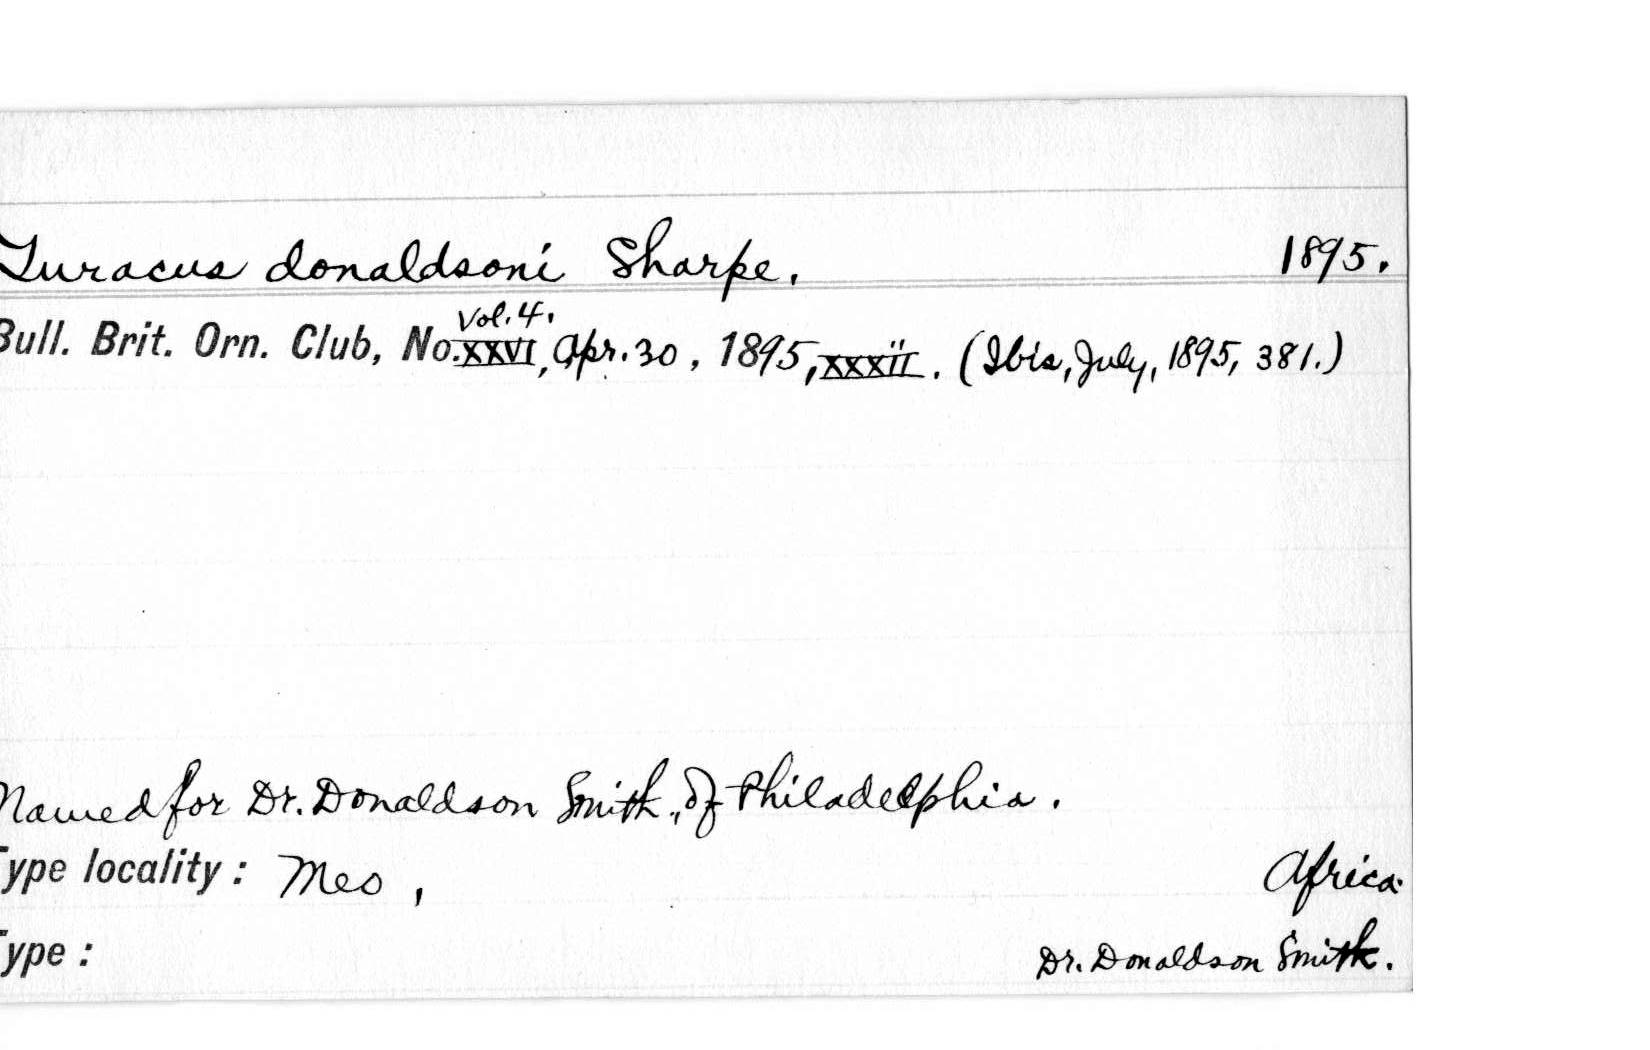 Turacus donaldsoni Sharpe. 1895.
Vol. 4.
Bull. Brit. Orn. Club, No. XXVI, Apr. 30, 1895, xxxii. (Ibis, July, 1895, 381.)
Named for Dr. Donaldson Smith, of Philadelphia.
Type locality: Meo, Africa.
Type: Dr. Donaldson Smith.